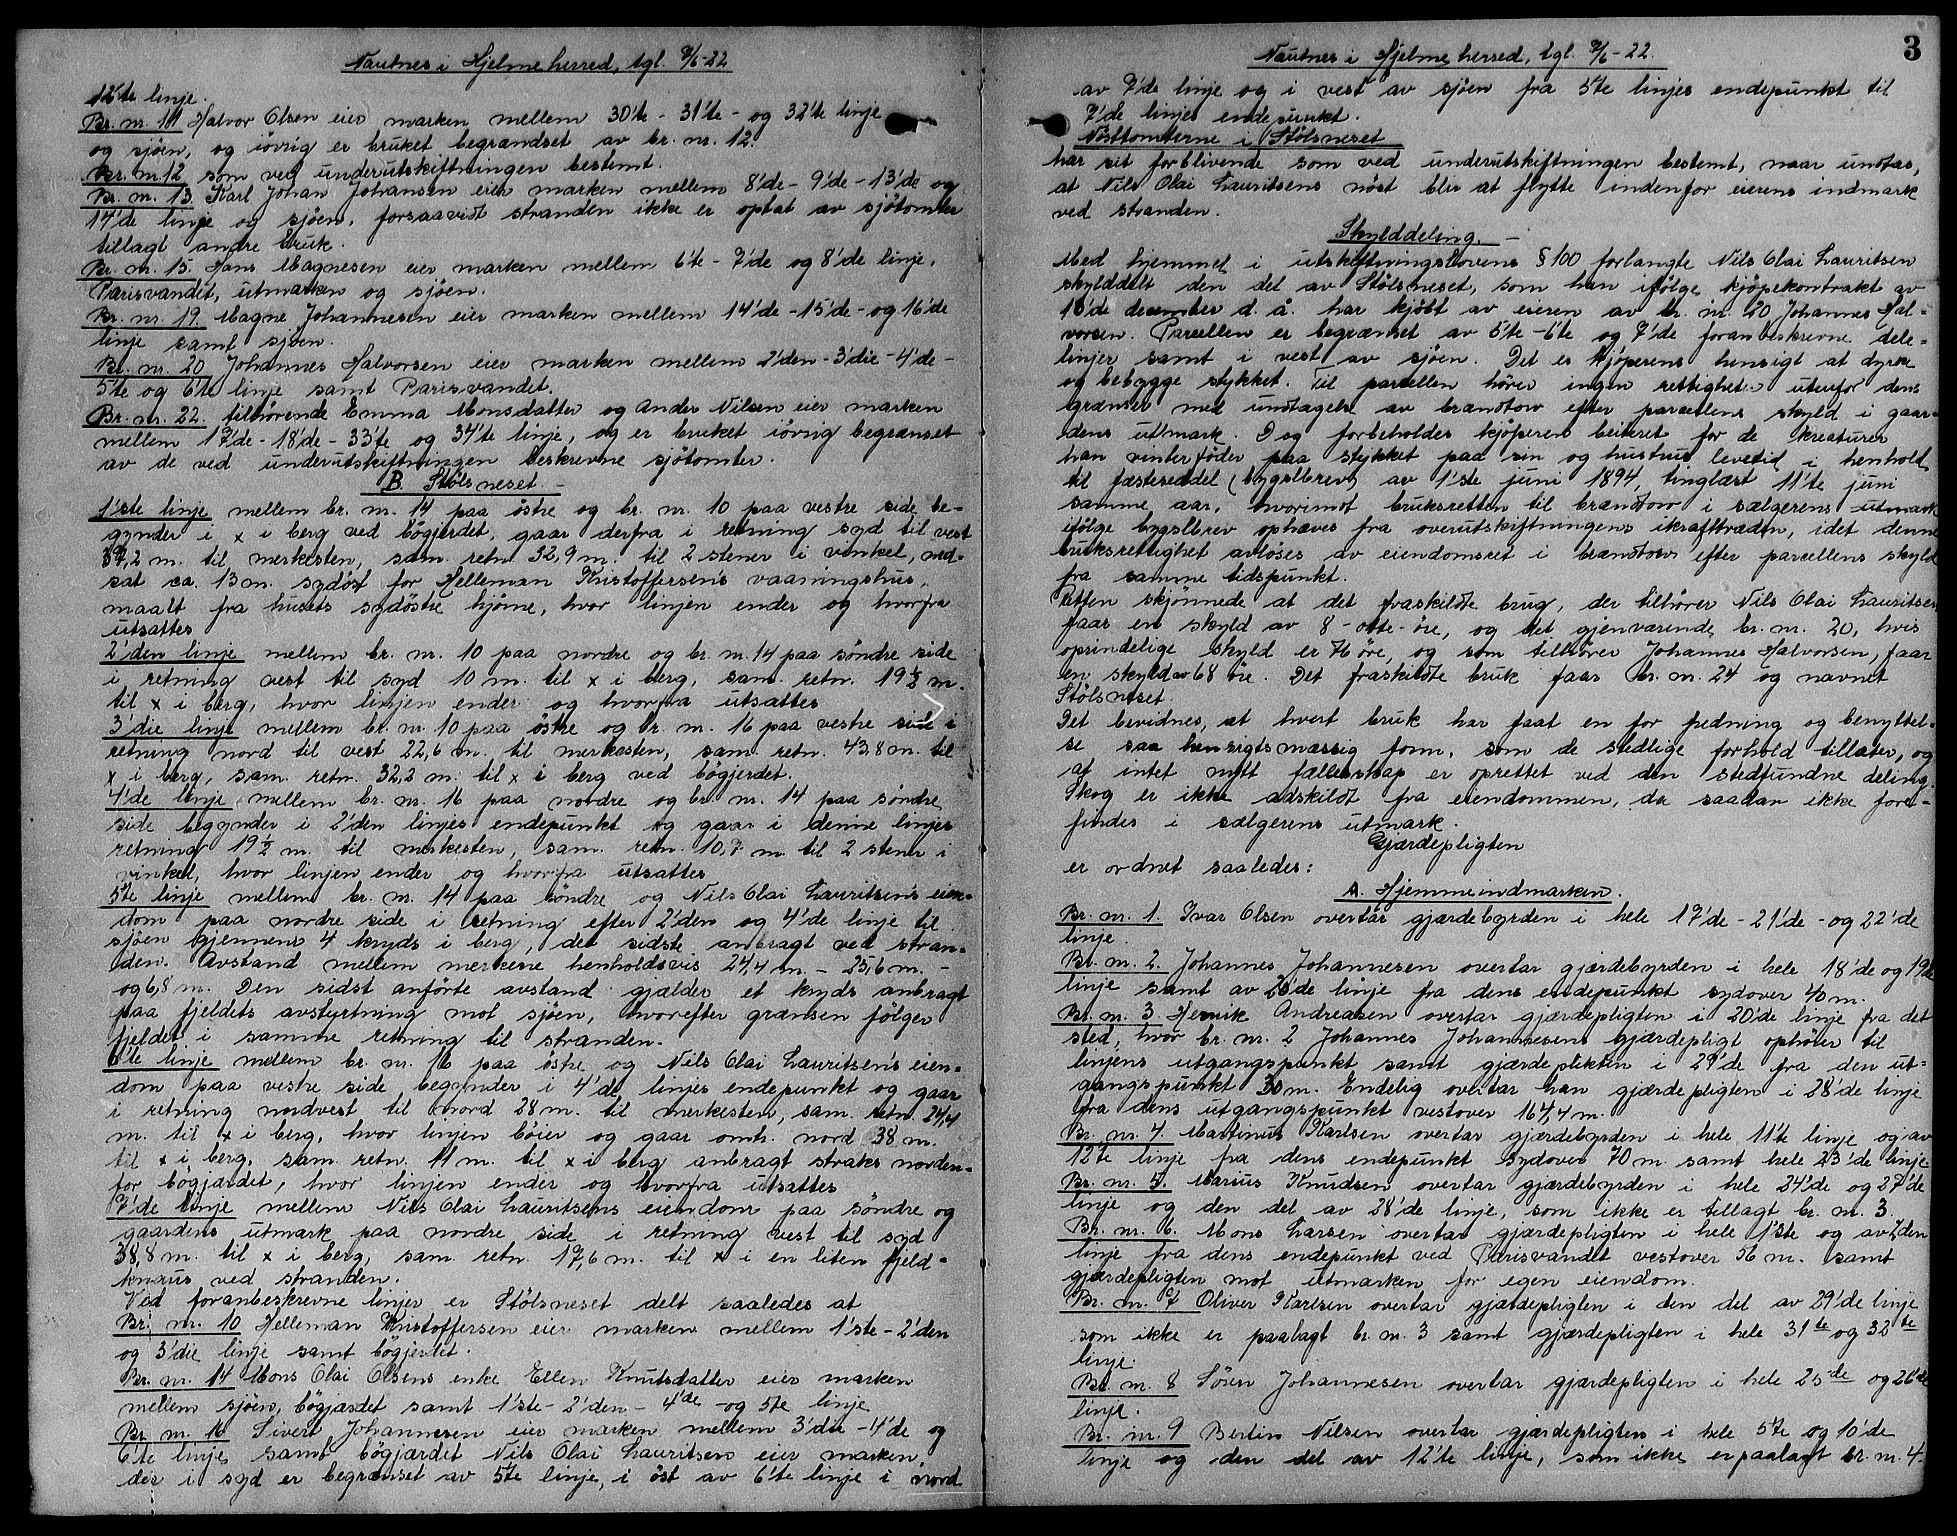 Nautnes i Hjelme herred, tgl. 9/6-22
12'te linje.
Br. nr. 11 Halvor Olsen eier marken mellem 30'te - 31'te - og 32'te linje
og sjöen, og iövrig er bruket begrændset av br. nr. 12.
Br. nr. 12 som ved underutskiftningen bestemt.
Br. nr. 13. Karl Johan Johansen eier marken mellem 8'de - 9'de - 13'de og
14'de linje og sjöen, forsaavidt stranden ikke er optat av sjötomter
tillagt andre bruk.
Br. nr. 15. Hans Magnesen eier marken mellem 6'te - 7'de og 8'de linje,
Parisvandet, utmarken og sjöen.
Br. nr. 19. Magne Johannesen eier marken mellem 14'de - 15'de - og 16'de
linje samt sjöen.
Br. nr. 20 Johannes Halvorsen eier marken mellem 2'den - 3'die - 4'de -
5'te og 6'te linje samt Parisvandet.
Br. nr. 22. tilhörende Emma Monsdatter og Ander Nilsen eier marken
mellem 17'de - 18'de - 33'te og 34'te linje, og er bruket iövrig begrænset
av de ved underutskiftningen beskrevne sjötomter.
B. Stölsneset.
1'ste linje mellem br. nr. 14 paa östre og br. nr. 10 paa vestre side be=
gynder i x i berg ved bögjerdet, gaar derfra i retning syd til vest
37,2 m. til merkesten, sam. retn. 32,9 m. til 2 stener i vinkel, ned=
sat ca. 13 m. sydöst for Helleman Kristoffersen's vaaningshus,
maalt fra husets sydöstre hjörne, hvor linjen ender og hvorfra
utsattes
2'den linje mellem br. nr. 10 paa nordre og br. nr. 14 paa söndre side
i retning vest til syd 10 m. til x i berg, sam. retn. 19 1/2 m.
til x i berg, hvor linjen ender og hvorfra utsattes
3'die linje mellem br. nr. 10 paa östre og br. nr. 16 paa vestre side i
retning nord til vest 22,6 m. til merkesten, sam. retn. 43,8 m. til
x i berg, sam. retn. 32,2 m. til x i berg ved bögjerdet.
4'de linje mellem br. nr. 16 paa nordre og br. nr. 14 paa söndre
side begynder i 2'den linjes endepunkt og gaar i denne linjes
retning 19 1/2 m. til merkesten, sam. retn. 10,7 m. til 2 stener i
vinkel, hvor linjen ender og hvorfra utsattes
5te linje mellem br. nr. 14 paa söndre og Nils Olai Lauritsen's eien=
dom paa nordre side i retning efter 2'den og 4'de linje til
sjöen gjennem 4 kryds i berg, det sidste anbragt ved stran=
den. Avstand mellem merkerne henholdsvis 24,4 m. - 25,6 m. -
og 6,8 m. Den sidst anförte avstand gjælder et kryds anbragt
paa fjeldets avstyrtning mot sjöen, hvorefter grænsen fölger
fjeldet i samme retning til stranden.
6'te linje mellem br. nr. 16 paa östre og Nils Olai Lauritsen's eien=
dom paa vestre side begynder i 4'de linjes endepunkt og gaar
i retning nordvest til nord 28 m. til merkesten, sam. retn. 24,4
m. til x i berg, hvor linjen böier og gaar omtr. nord 38 m.
til x i berg, sam. retn. 11 m. til x i berg anbragt straks norden=
for bögjærdet, hvor linjen ender og hvorfra utsattes
7'de linje mellem Nils Olai Lauritsens eiendom paa söndre og
gaardens utmark paa nordre side i retning vest til syd
38,8 m. til x i berg, sam. retn. 17,6 m. til x i en liten fjeld=
knaus ved stranden.
Ved foranbeskrevne linjer er Stölsneset delt saaledes at
Br. nr. 10 Helleman Kristoffersen eier marken mellem 1'ste - 2'den
og 3'die linje samt bögjerdet.
Br. nr. 14 Mons Olai Olsens enke Ellen Knutsdatter eier marken
mellem sjöen, bögjærdet samt 1'ste - 2'den - 4'de og 5te linje
Br. nr. 16 Sivert Johannesen eier marken mellem 3'die - 4'de og
6'te linje samt bögjærdet Nils Olai Lauritsen eier marken,
der i syd er begrænset av 5te linje, i öst av 6'te linje i nord
Nautnes i Hjelme herred, tgl. 9/6-22.
3
av 7'de linje og i vest av sjöen fra 5te linjes endepunkt til
7'de linjes endepunkt.
Nösttomterne i Stölsneset
har sit forblivende som ved underutskiftningen bestemt, naar undtas,
at Nils Olai Lauritsens nöst blir at flytte indenfor eierens indmark
ved stranden.
Skylddeling.
Med hjemmel i utskiftningslovens § 100 forlangte Nils Olai Lauritsen
skylddelt den del av Stölsneset, som han ifölge kjöpekontrakt av
16'de december d. å. har kjöbt av eieren av br. nr. 20 Johannes Hal=
vorsen. Parcellen er begrænset av 5'te - 6'te og 7'de foranbeskrevne dele=
linjer samt i vest av sjöen. Det er kjöperens hensigt at dyrke
og bebygge stykket. Til parcellen hörer ingen rettigheter utenfor dens
grænser med undtagelse av brændtorv efter parcellens skyld i gaar=
dens utmark. Dog forbeholdes kjöperen beiteret for de kreaturer
han vinterföder paa stykket paa sin og hustrus levetid i henhold
til fæsteseddel (bygselbrev) av 1'ste juni 1894, tinglæst 11'te juni
samme aar, hvorimot bruksretten til brændtorv i sælgerens utmark
ifölge bygslbrev ophæves fra overutskiftningens ikrafttræden, idet denne
bruksrettighet avlöses av eiendomsret i brændtorv efter parcellens skyld
fra samme tidspunkt.
Retten skjönnede at det fraskildte brug, der tilhörer Nils Olai Lauritsen
faar en skyld av 8 - otte - öre, og det gjenværende br. nr. 20, hvis
oprindelige skyld er 76 öre, og som tilhörer Johannes Halvorsen, faar
en skyld av 68 öre. Det fraskildte bruk faar br. nr. 24 og navnet
Stölsneset.
Det bevidnes, at hvert bruk har faat en for fredning og benyttel=
se saa hensigtsmæssig form, som de stedlige forhold tillater, og
at intet nytt fælleskap er oprettet ved den stedfundne deling.
Skog er ikke adskildt fra eiendommen, da saadan ikke fore=
findes i sælgerens utmark.
Gjærdepligten
er ordnet saaledes:
A. Hjemmeindmarken.
Br. nr. 1. Ivar Olsen overtar gjærdebyrden i hele 17'de - 21'de - og 22'de
linje.
Br. nr. 2. Johannes Johannesen overtar gjærdebyrden i hele 18'de og 19de
linje samt av 20'de linje fra dens endepunkt sydover 40 m.
Br. nr. 3. Henrik Andreasen overtar gjærdepligten i 20'de linje fra det
sted, hvor br. nr. 2 Johannes Johannesens gjærdepligt ophörer til
linjens utgangspunkt samt gjærdeplikten i 29'de fra den ut=
gangspunkt 30 m. Endelig overtar han gjærdepligten i 28'de linje
fra dens utgangspunkt vestover 164,4 m.
Br. nr. 4. Martinus Karlsen overtar gjærdebyrden i hele 11'te linje og av
12'te linje fra dens endepunkt sydover 70 m. samt hele 23'de linje
Br. nr. 5. Marius Knudsen overtar gjærdebyrden i hele 24'de og 27'de
linje og den del av 28'de linje, som ikke er tillagt br. nr. 3.
Br. nr. 6. Mons Larsen overtar gjærdepligten i hele 1'ste og av 2,den
linje fra dens endepunkt ved Parisvandet vestover 56 m. samt
gjærdepligten mot utmarken for egen eiendom.
Br. nr. 7 Oliver Karlsen overtar gjærdepligten i den del av 29'de linje
som ikke er paalagt br. nr. 3 samt gjærdepligten i hele 31te og 32te
linje.
Br. nr. 8 Sören Johannesen overtar gjærdepligten i hele 25de og 26de
linje.
Br. nr. 9 Bertin Nilsen overtar gjærdepligten i hele 5te og 10'de
linje og den del av 12'te linje, som ikke er paalagt br. nr. 4.